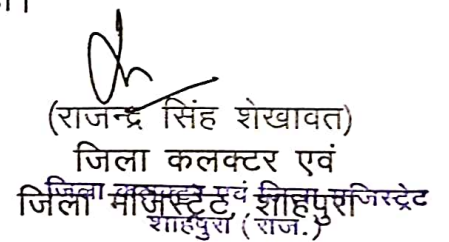 (राजेन्द्र सिंह शेखावत)
जिला कलक्टर एवं
जिला मजिस्ट्रेट, शाहपुरा
जिला कलक्टर एवं जिला मजिस्ट्रेट
शाहपुरा (राज.)